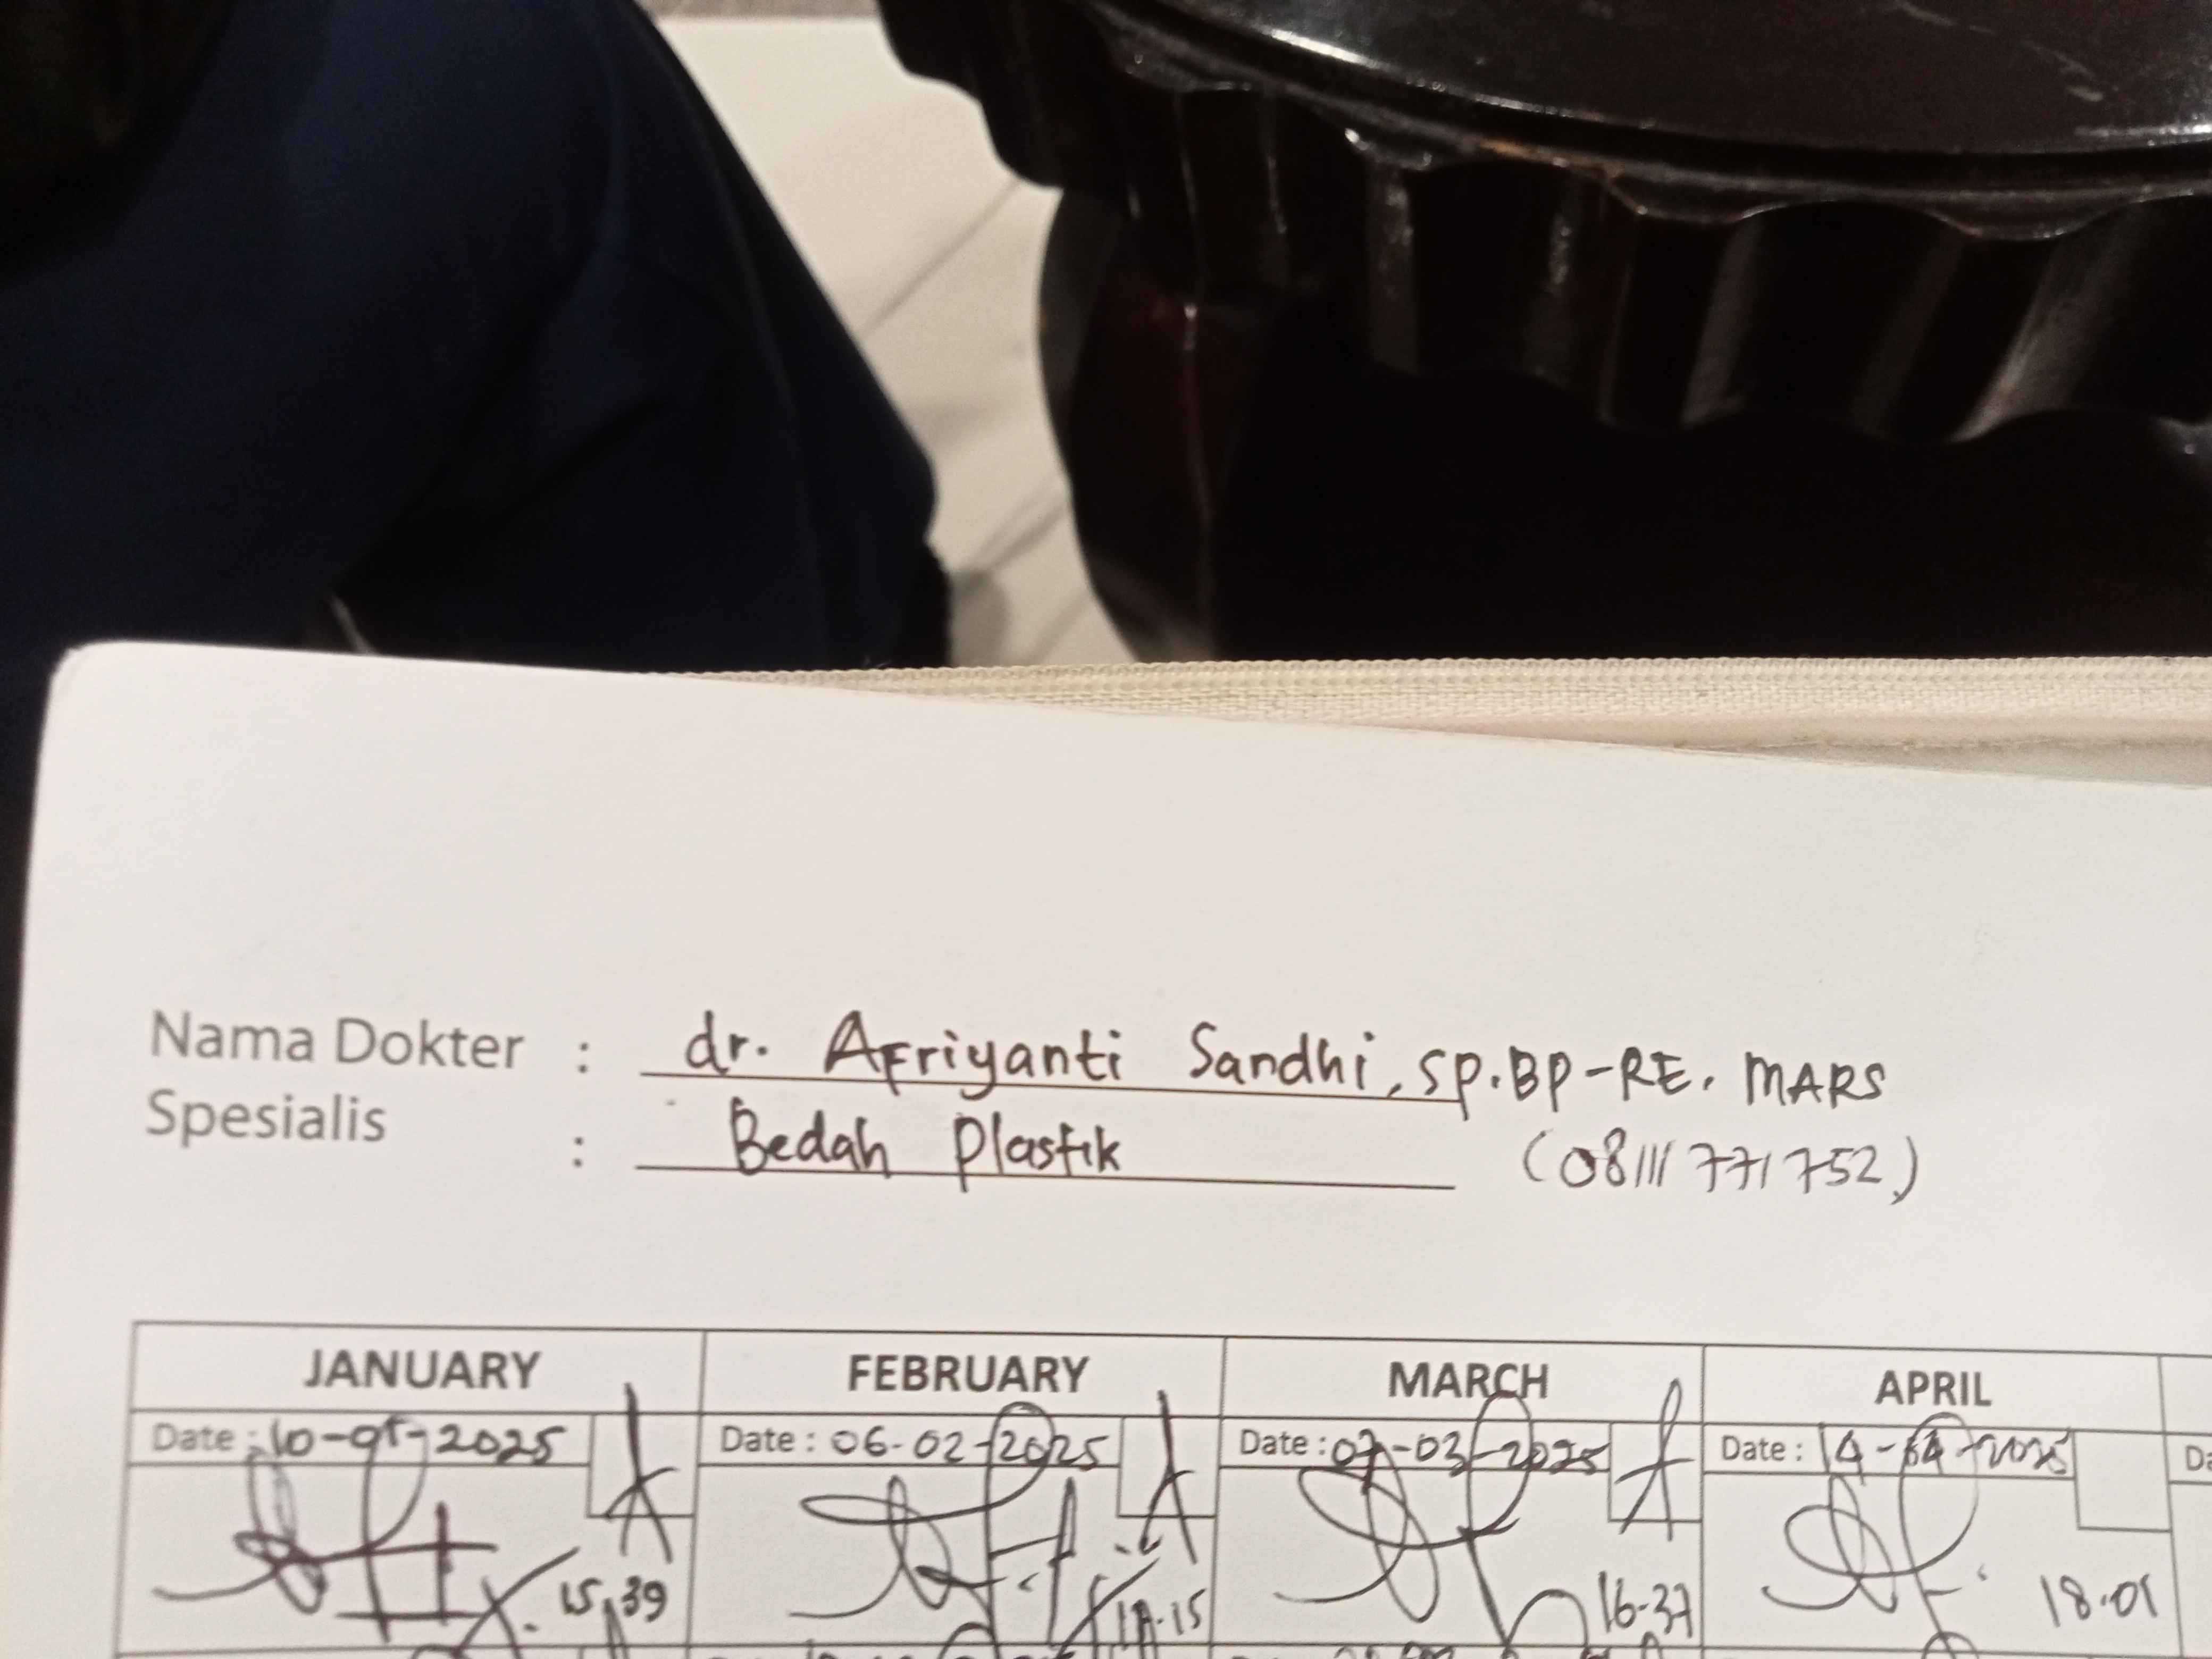 Nama Dokter : dr. Afriyanti Sandhi, SP.BP-RE. MARS
Spesialis : Bedah Plastik (08111771752)
JANUARY FEBRUARY MARCH APRIL
Date : 10-01-2025 Date : 06-02-2025 Date : 07-03-2025 Date : 14-04-2025
15.39 16-37 18.01